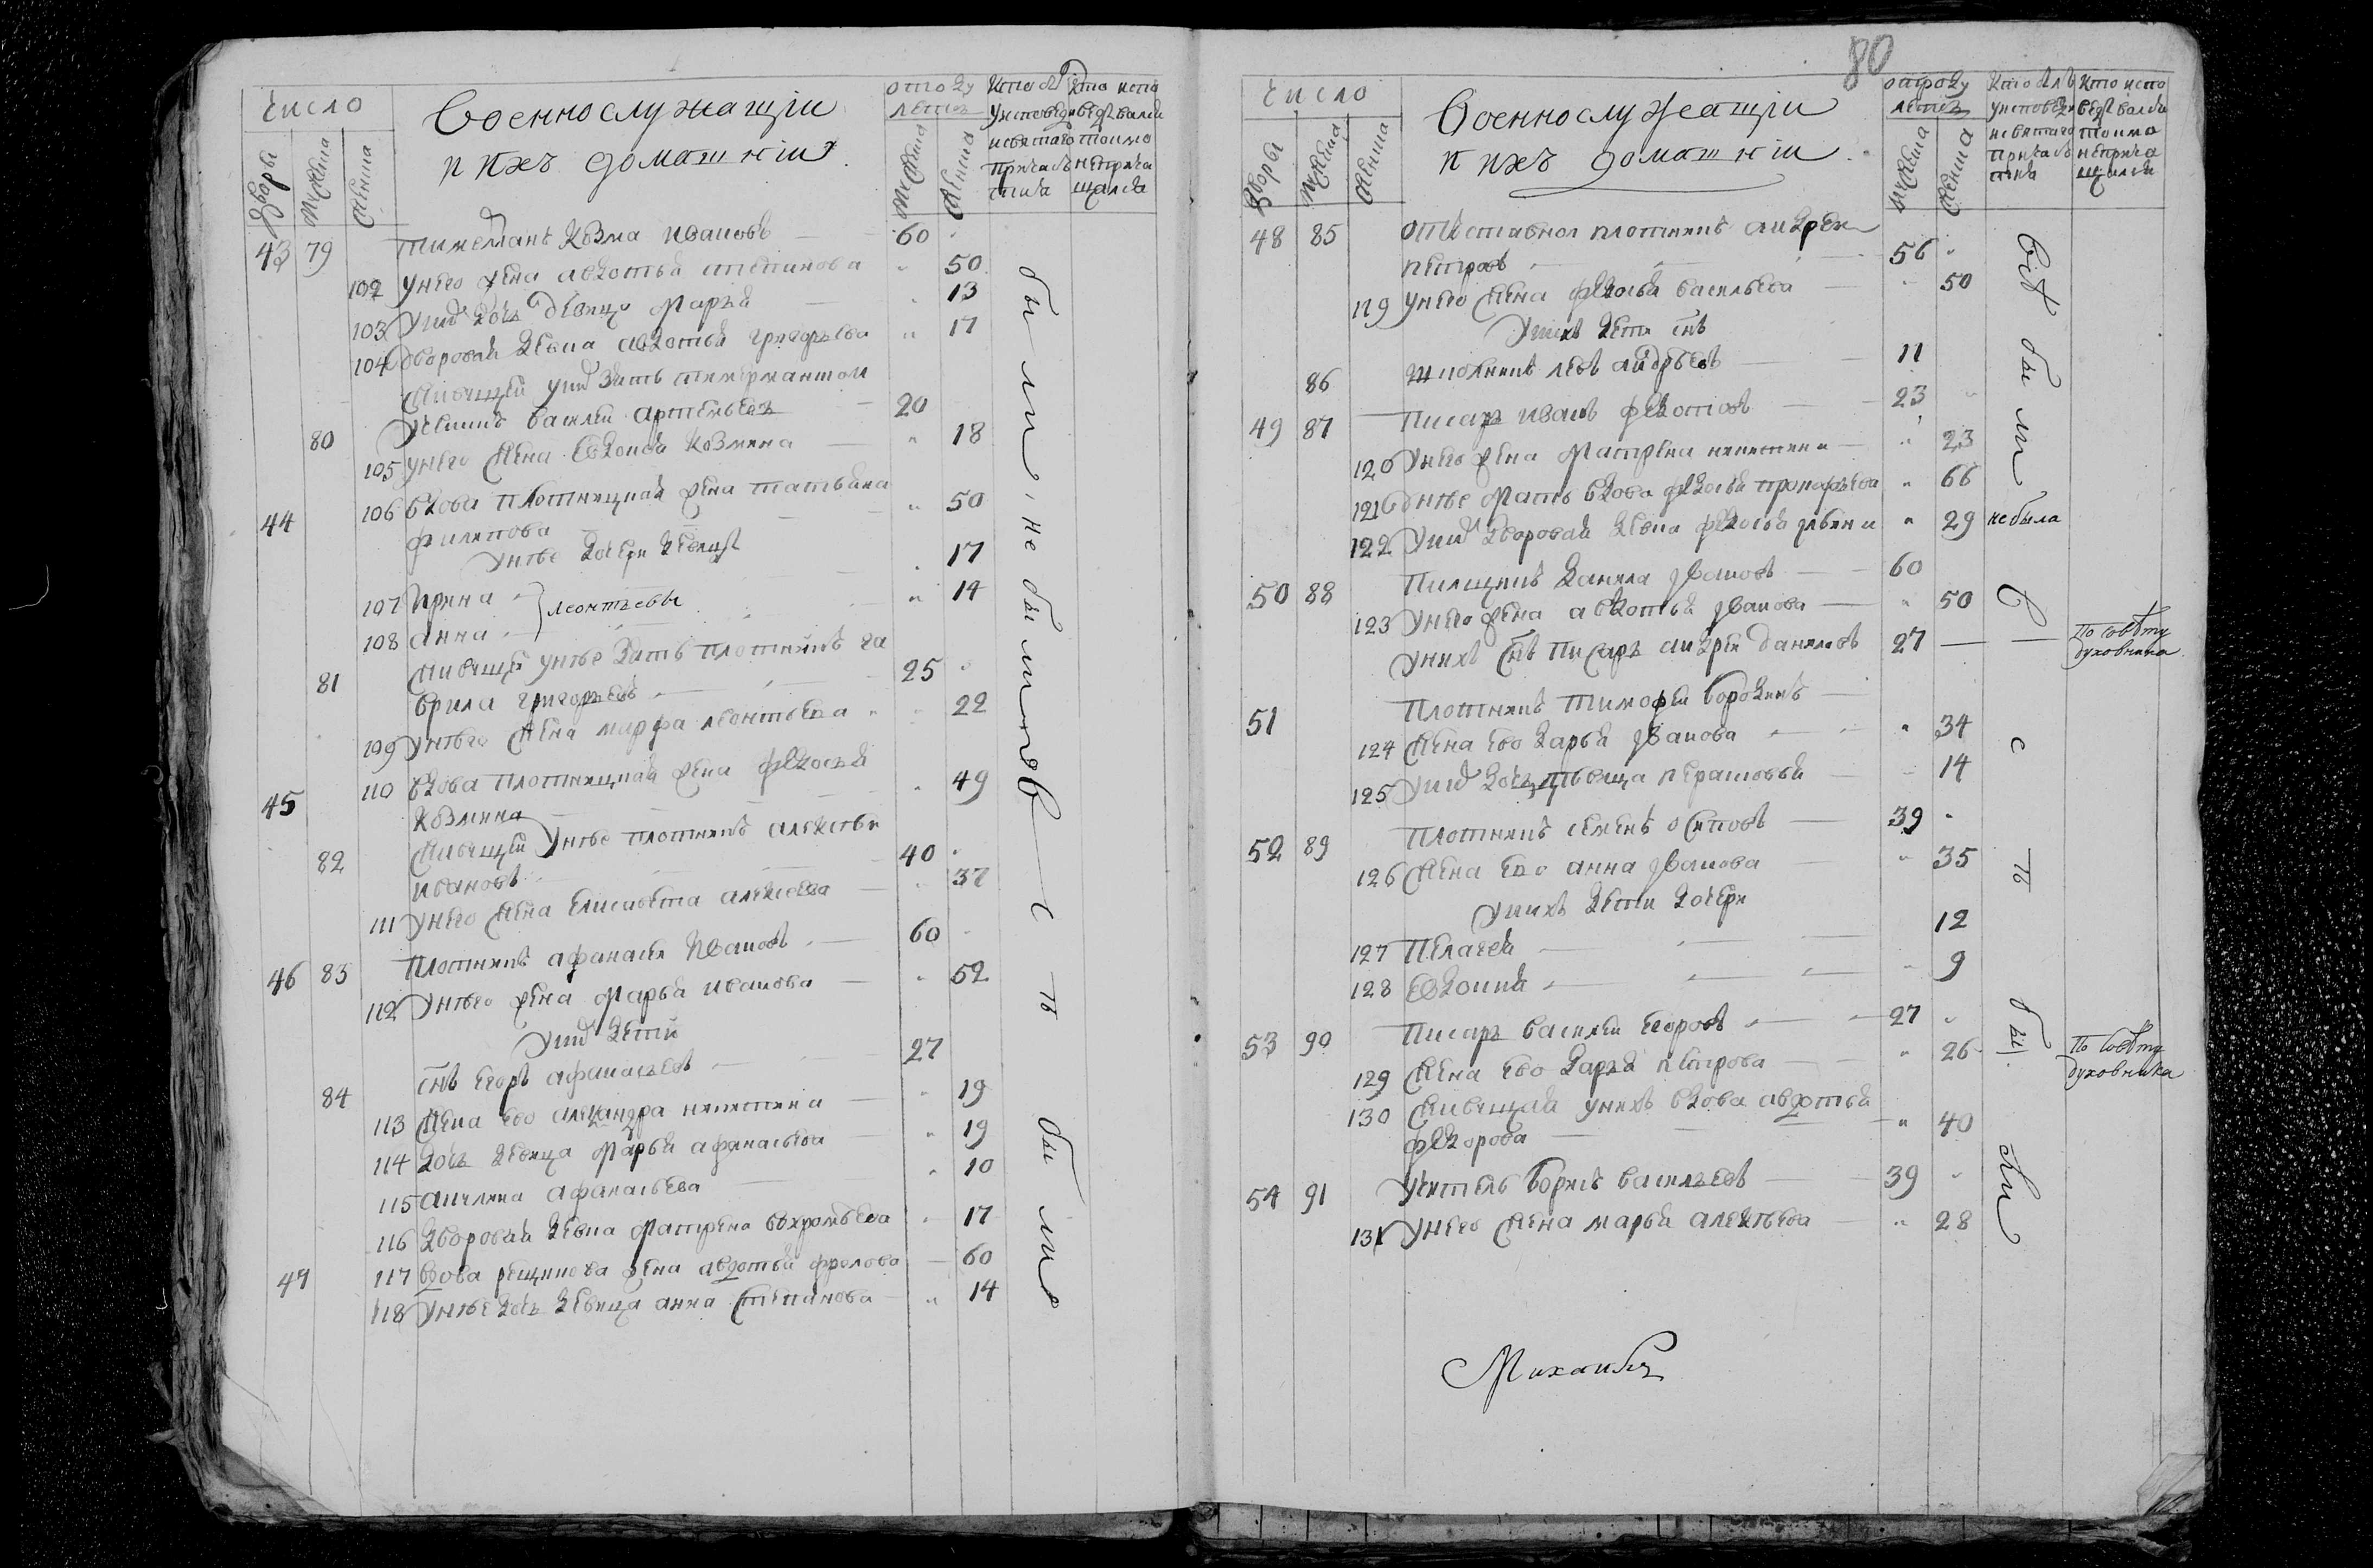 80
число
Военнослужащiи
и ихъ домашнiи
отроду
летъ
Кто былъ
у исповеди
и святаго
причастия
Кто испо
ведывался
токмо
не прича
щался
дворы
мужска
женска
43 79 Тимерманъ Козма Ивановъ 60
102 У него жена Авдотья Степанова 50
103 У них дочь девица Марья 13
104 Дворовая девка Авдотья Григорьева 17
Живущей у них зять тимерманской
80 ученикъ Василей Артемьевъ 20
105 У него жена Евдокия Козмина 18
44 106 Вдова плотницкая жена Татьяна
Филипова 50
У нее дочери девицы
107 Ирина 17
Леонтьевы
108 Анна 14
Живущей у нее зять плотникъ Га
81 врила Григорьевъ 25
109 У него жена Марфа Леонтьева 22
45 110 Вдова плотницкая жена Федосья
Козмина 49
Живущей у нее плотникъ Алексей
82 Ивановъ 40
111 У него жена Елисавета Алексеева 37
46 83 Плотникъ Афанасей Ивановъ 60
112 У него жена Марья Иванова 52
У них дети
84 сынъ Егоръ Афанасьевъ 27
113 Жена ево Александра Никитина 19
114 дочь девица Марья Афанасьева 19
115 Афанасьева 10
116 Дворовая девка Матрена Вахромеева 17
47 117 Вдова жена Авдотья Фролова 60
118 У нее дочь девица Анна Степанова 14
были, не были
всѣ были
число
Военнослужащiи
и ихъ домашнiи
отроду
летъ
Кто былъ
у исповеди
и святаго
причастия
Кто испо
ведывался
токмо
не прича
щался
дворы
мужска
женска
48 85 Отставной плотникъ Андрей
Петровъ 56
119 У него жена Федосья Васильева 50
У нихъ дети сынъ
86 школникъ Левъ Андреевъ 11
49 87 Писарь Иванъ Федотовъ 23
120 У него жена Матрена Никитина 23
121 У нее мать вдова Федосья Прокофьева 66
122 У них дворовая девка Федосья 29 не была
50 88 Пилщикъ Данила Ивановъ 60
123 У него жена Авдотья Иванова 50
У нихъ сынъ писарь Андрей Даниловъ 27 По совѣту
духовника
51 Плотникъ Тимофей Бородинъ
124 Жена ево Дарья Иванова 34
125 У них дочь девица Парасковья 14
52 89 Плотникъ Семенъ Осиповъ 39
126 Жена ево Анна Иванова 35
У нихъ дети дочери
127 Пелагея 12
128 Евдокия 9
53 90 Писарь Василей Егоровъ 27
129 Жена ево Дарья Петрова 26 По совѣту
духовника
130 Живущая у нихъ вдова Авдотья
Федорова 40
54 91 Учитель Борисъ Васильевъ 39
131 У него жена Марья Алексеева 28
всѣ были
всѣ были